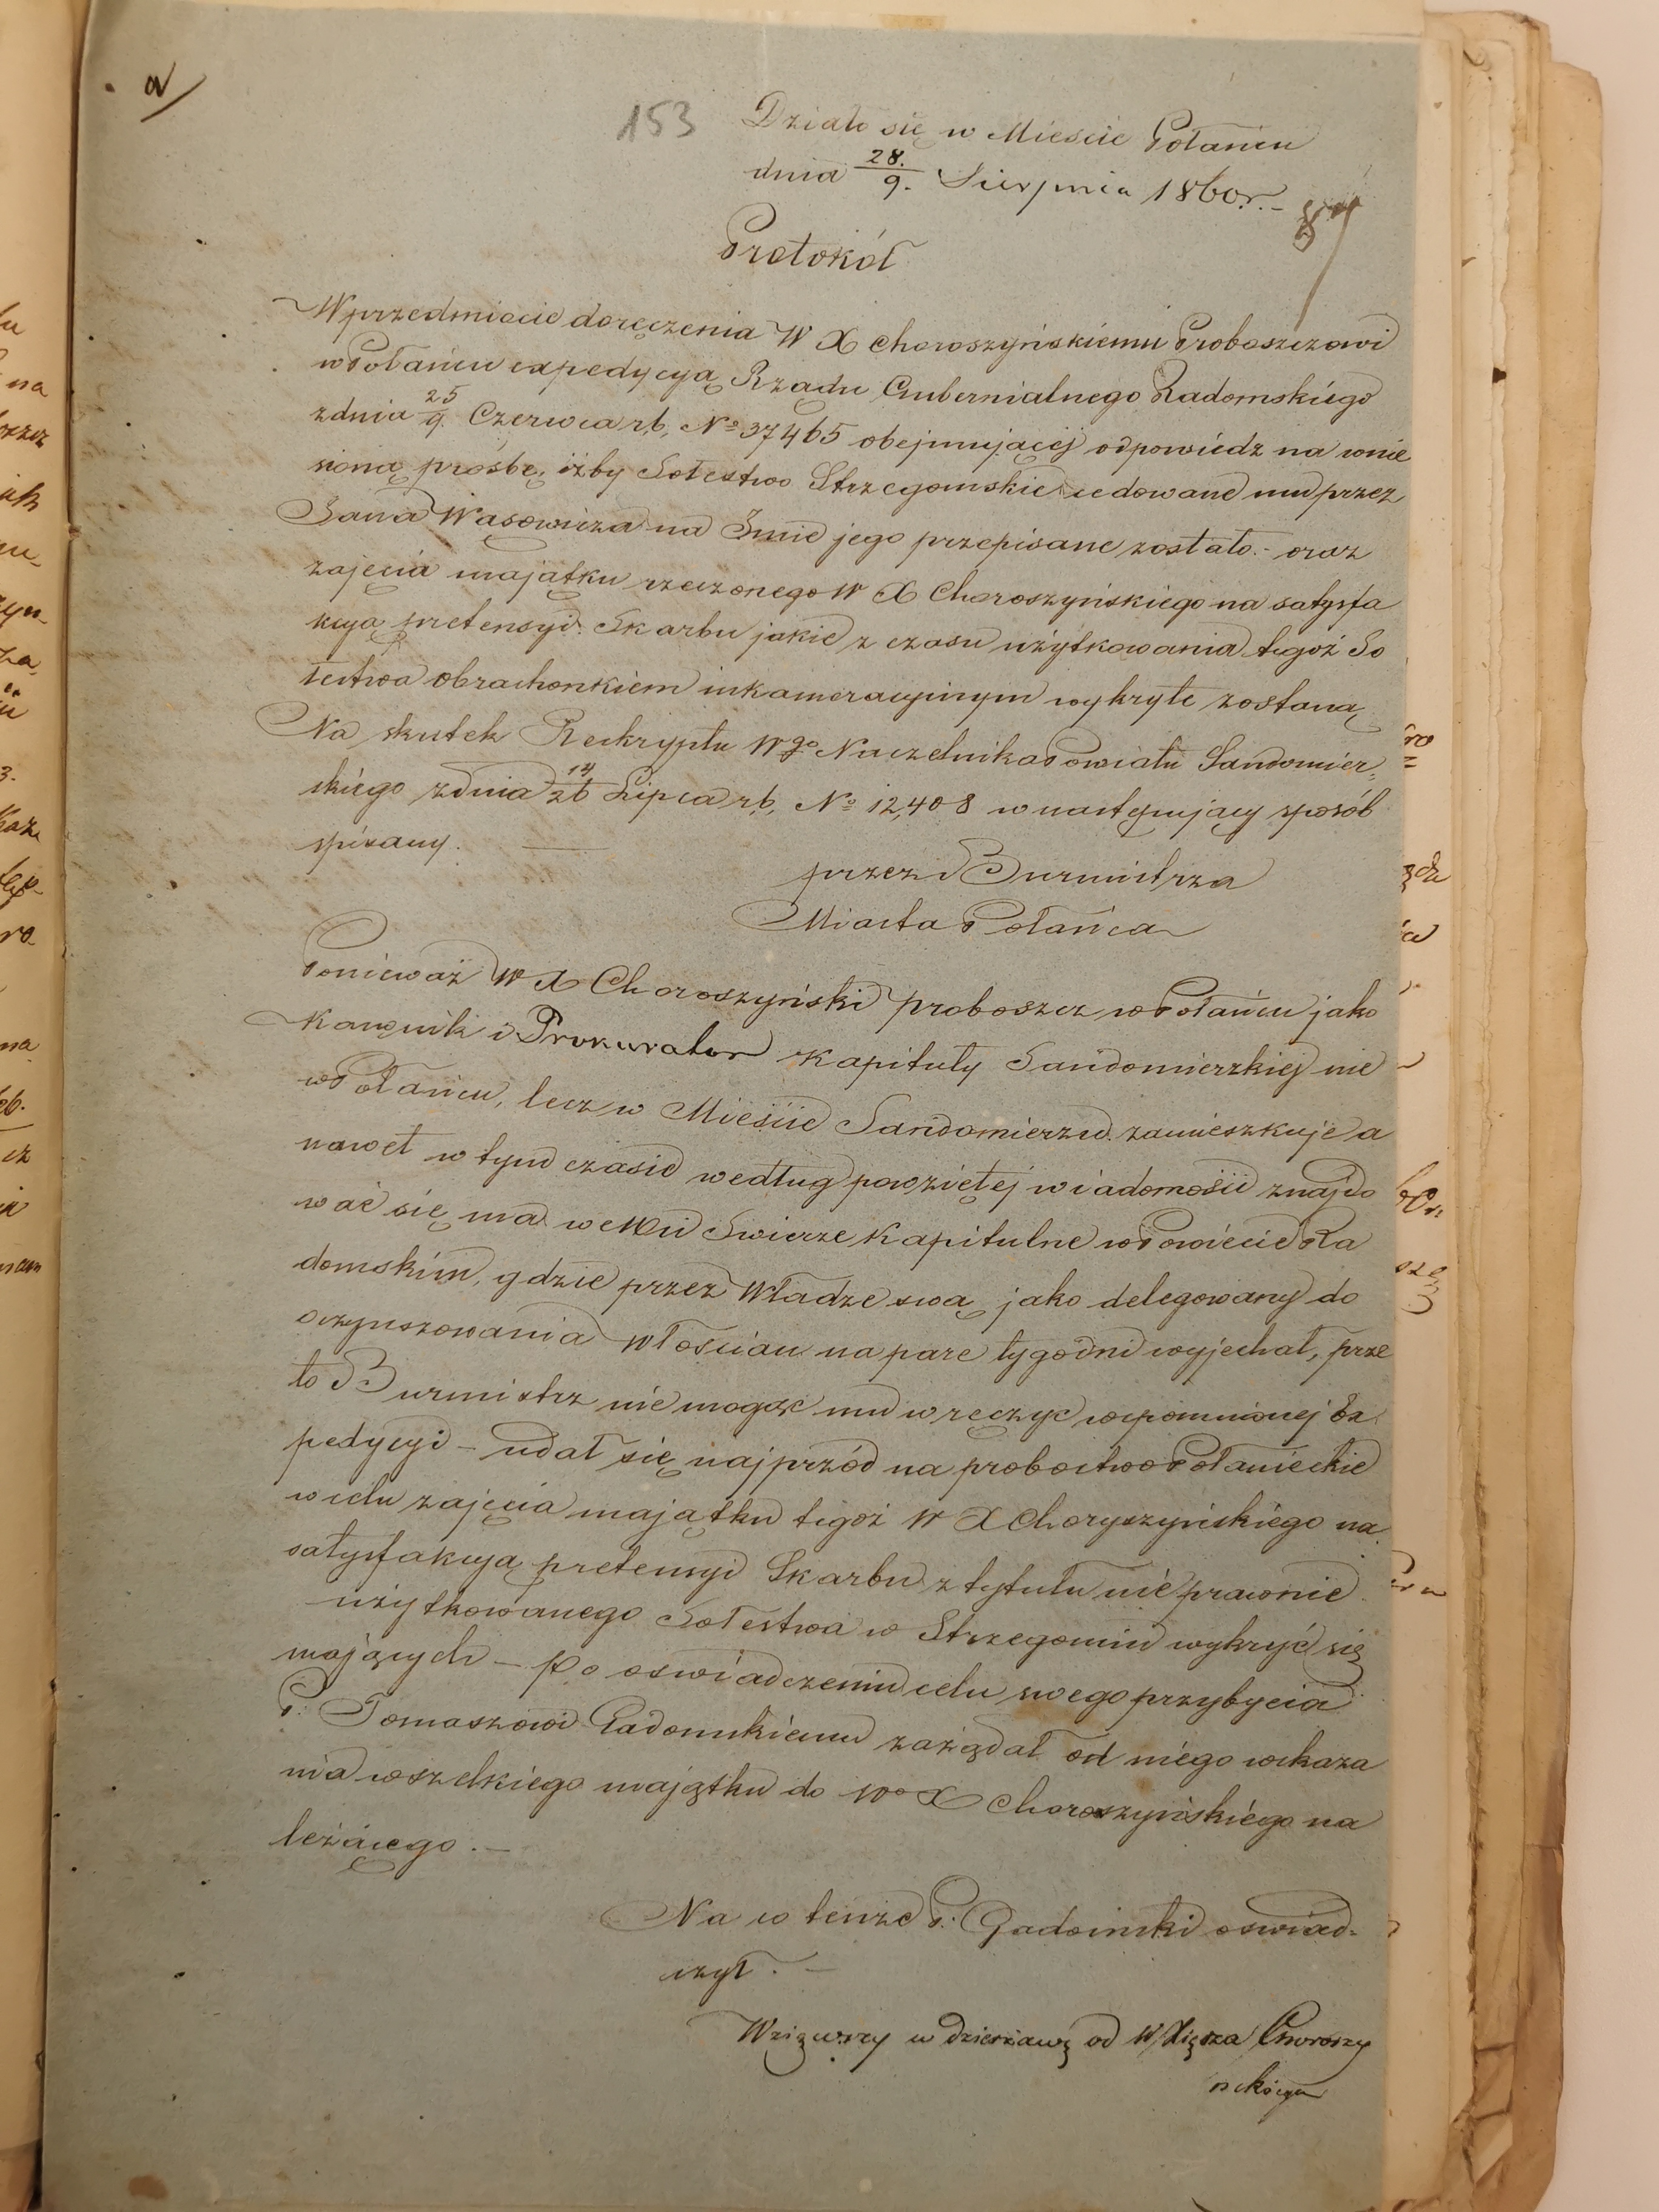 a/
153
Działo się w Mieście Połańcu
dnia 28./9. Sierpnia 1860r.-
87
Protokół
W przedmiocie doręczenia W X Choroszyńskiemu Proboszczowi
w Połańcu expedycyą Rządu Gubernialnego Radomskiego
z dnia 25/9. Czerwca r.b. No 37465 obejmującej odpowiedz na wnie
sioną prośbę, iżby Sołestwo Strzegomskie cedowane mu przez
Jana Wąsowicza na Imie jego przepisane zostało.- oraz
zajęcia majątku rzeczonego W X Choroszyńskiego na satysfa
kcyą pretensyi Skarbu jakie z czasu użytkowania tegoż So
łestwa obrachonkiem inkameracyinym wykryte zostaną
Na skutek Reskryptu Wgo Naczelnika Powiatu Sandomier,
skiego z dnia 14/26 Lipca r.b. No 12,408 w następujący sposób
spisany. —
przez Burmistrza
Miasta Połańca
Ponieważ W X Choroszyński proboszcz w Połańcu jako
Kanonik i Prokurator Kapituły Sandomierzkiej nie
w Połańcu, lecz w Mieście Sandomierzu zamieszkuje a
nawet w tym czasie według powziętej wiadomości znajdo
wać się ma we Wsi Swierze Kapitulne w Powiecie Ra
domskim, gdzie przez Władze swą jako delegowany do
oczynszowania włościan na pare tygodni wyjechał, prze
to Burmistrz nie mogąc mu wręczyć wspomnionej Ex
pedycyi – udał się najprzód na probostwo Połanieckie
w celu zajęcia majątku tegoż W X Choryszyńskiego na
satysfakcyą pretensyi Skarbu z tytułu nieprawnie
użytkowanego Sołestwa w Strzegomiu wykryć się
mających – po oswiadczeniu celu swego przybycia
P. Tomaszowi Gadomskiemu zażądał od niego wskaza
nia wszelkiego majątku do Wo X Choroszyńskiego na
leżącego .—
Na to tenże P. Gadomski oswiad-
czył . —
Wziąwszy w dzierżawę od W Xiędza Choroszy
nskiego